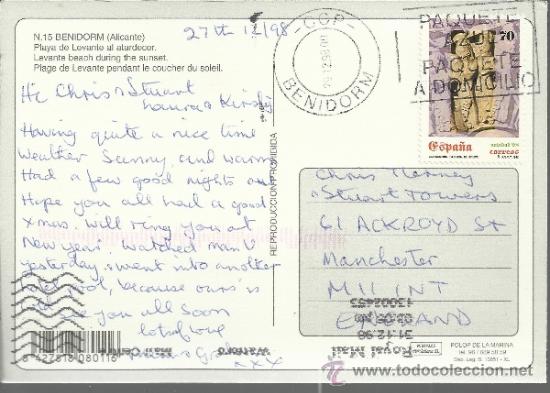 N.15 BENIDORM (Alicante)
Playa de Levante al atardecer.
Levante beach during the sunset.
Plage de Levante pendant le coucher du soleil.
27th 12/98
Hi Chris & Stuart
Laura & Kirsty
Having quite a nice time
Weather Sunny and warm
Had a few good nights out
Hope you all had a good
Xmas, will ring you at
New year, watched man U
yesterday, went into another
because ours is
see you all Soon
lots of love
xxx
8 427818 080116
REPRODUCCION PROHIBIDA
CCP
BENIDORM
PAQUETE
AZUL
PAQUETE
A DOMICILIO
70
España
correos
Chris
& Stuart Towers
61 ACKROYD ST
Manchester
M11 1NT
ENGLAND
Royal Mail
31.12.98
POLOP DE LA MARINA
todocoleccion.net